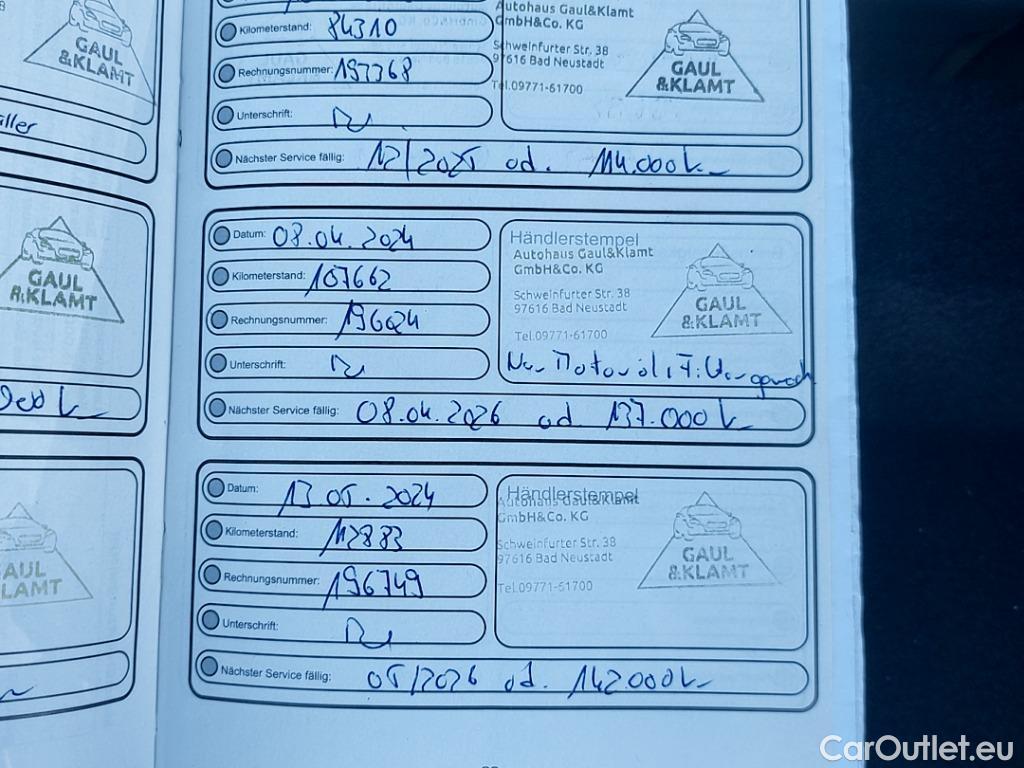 Kilometerstand: 84310
Rechnungsnummer: 193368
Unterschrift:
Nächster Service fällig: 12/2025 od. 114.000 k
Autohaus Gaul&Klamt
GmbH&Co. KG
Schweinfurter Str. 38
97616 Bad Neustadt
Tel.09771-61700
GAUL
&KLAMT
Datum: 08.04.2024
Kilometerstand: 107662
Rechnungsnummer: 196024
Unterschrift:
Nächster Service fällig: 08.04.2026 od 137.000 k
Händlerstempel
Autohaus Gaul&Klamt
GmbH&Co. KG
Schweinfurter Str. 38
97616 Bad Neustadt
Tel.09771-61700
GAUL
&KLAMT
Datum: 13.05.2024
Kilometerstand: 112883
Rechnungsnummer: 196749
Unterschrift:
Nächster Service fällig: 05/2026 od. 142.000 k
Händlerstempel
Autohaus Gaul&Klamt
GmbH&Co. KG
Schweinfurter Str. 38
97616 Bad Neustadt
Tel.09771-61700
GAUL
&KLAMT
GAUL
&KLAMT
GAUL
&KLAMT
AUL
LAMT
CarOutlet.eu